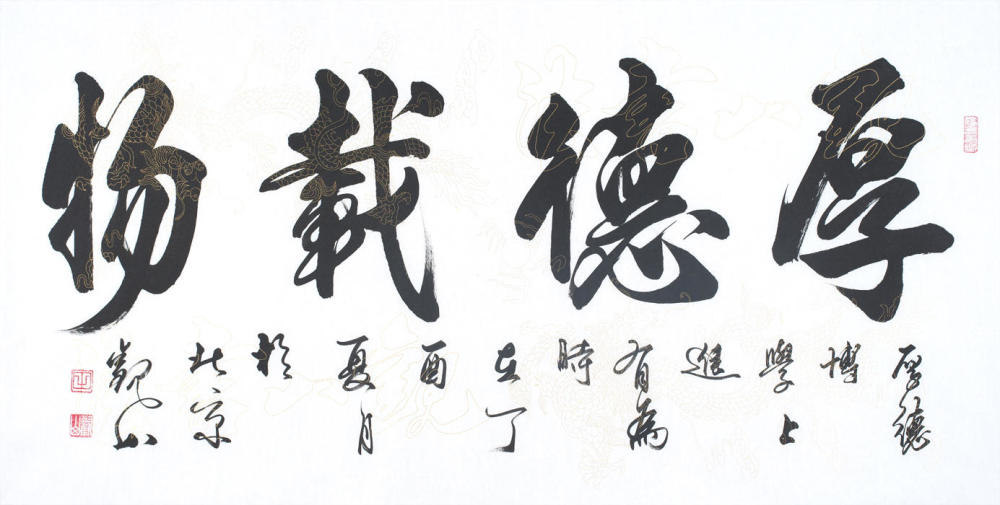 厚德載物
厚德
博
學上
進
有為
時
在丁
酉
夏月
於
北京
觀山